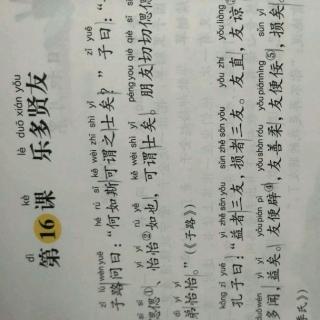 dì kè lè duō xián yǒu
第16课 乐多贤友
zǐ lù wèn yuē hé rú sī kě wèi zhī shì yǐ zǐ yuē
子路问曰:“何如斯可谓之士矣?”子曰:“
yí yí rú yě kě wèi shì yǐ péng you qiè qiè sī
偲偲①、怡怡②如也,可谓士矣。朋友切切偲偲
dì yí yí
弟怡怡。”(《子路》)
kǒng zǐ yuē yì zhě sān yǒu sǔn zhě sān yǒu yǒu zhí yǒu liàng
孔子曰:“益者三友,损者三友。友直,友谅
duō wén yì yǐ yǒu pián pì yǒu shàn róu yǒu pián nìng sǔn yǐ
多闻,益矣。友便辟④,友善柔,友便佞⑤,损矣
季氏》)